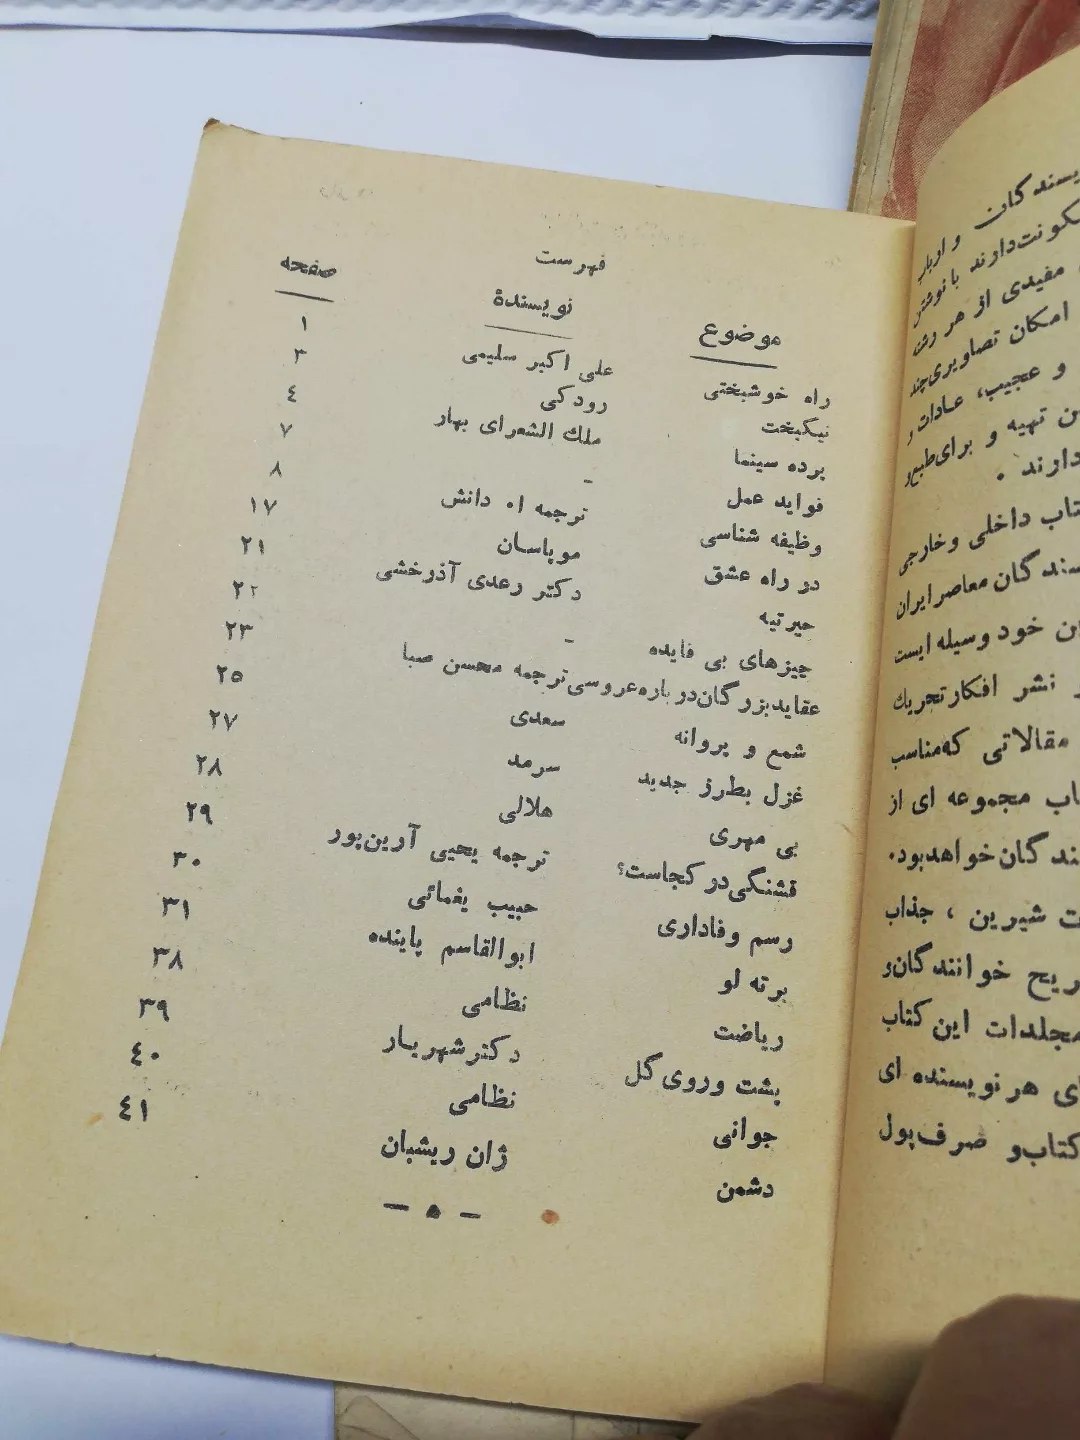 فهرست
موضوع نویسندهٔ صفحه
راه خوشبختی علی اکبر سلیمی ۱
نیکبخت رودکی ۳
برده سینما ملك الشعرای بهار ٤
فواید عمل - ۷
وظیفه شناسی ترجمه ا۰ دانش ۸
در راه عشق موپاسان ۱۷
حیرتیه دکتر رعدی آذرخشی ۲۱
چیزهای بی فایده - ۲۲
عقاید بزرگان درباره عروسی ترجمه محسن صبا ۲۳
شمع و پروانه سعدی ۲۵
غزل بطرز جدید سرمد ۲۷
بی مهری هلالی ۲۸
قشنگی در کجاست؟ ترجمه یحیی آرین‌پور ۲۹
رسم وفاداری حبیب یغمائی ۳۰
برته لو ابوالقاسم پاینده ۳۱
ریاضت نظامی ۳۸
پشت و روی گل دکتر شهریار ۳۹
جوانی نظامی ٤۰
دشمن ژان ریشبان ٤۱
- ۵ -
و ارباب
دارند با نوشتن
مفیدی از هر رشته
امکان تصاویری چند
و عجیب، عادات و
تهیه و برای طبع و
دارند .
داخلی و خارجی
معاصر ایران
خود وسیله ایست
نشر افکار تحریك
مقالاتی که مناسب
مجموعه ای از
خواهد بود.
شیرین ، جذاب
خوانندگان و
مجلدات این کتاب
هر نویسنده ای
کتاب و صرف پول